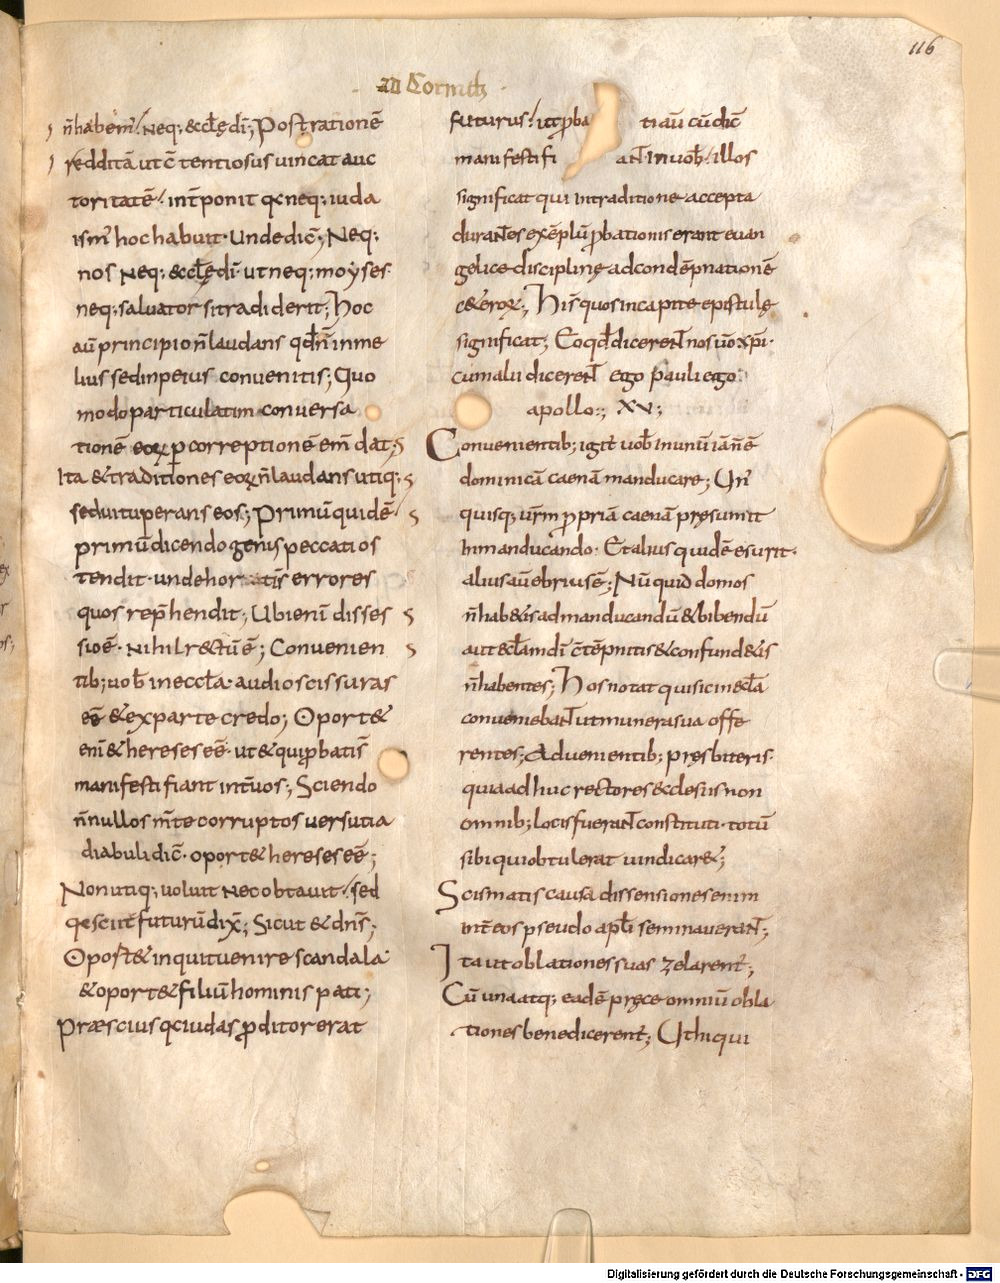 116
ad Corinth
n̄habem̄! Neq; &ccłę dī; Post rationē
redditā ut c̄tentiosus uincat auc
toritatē! int̄ponit qꝛ neq; iuda
ism̄ hoc habuit. Unde dic̄; Neq;
nos neq; &ccłę dī. ut neq; moyses
neq; saluator si tradiderit; Hoc
aū principio n̄ laudans qđ n̄ in me
lius sed in peius conuenitis; Quo
modo particulatim conuersa
tionē eoꝝ ꝑ correptionē em̄dat;
Ita & traditiones eoꝝ n̄ laudans utiq;
sed uituperans eos; Primū quidē
primū dicendo genus peccati os
tendit. unde hor errores
quos rep̄hendit; Ubi enī disses
sio ē. nihil rectū ē; Conuenien
tib; uob̄ in eccła. audio scissuras
eē & ex parte credo; Oport&
enī & hereses eē. ut & qui ꝓbati s̄
manifesti fiant int̄ uos; Sciendo
n̄nullos m̄te corruptos uersutia
diabuli dic̄. oport& hereses eē;
Non utiq; uoluit nec obtauit! sed
qꝛ sciit futurū dix̄; Sicut & dn̄s;
Oport& inquit uenire scandala
& oport& filiū hominis pati;
Præscius qꝛ iudas ꝓditor erat
futurus! ut ꝓba ti aū cū dic̄
manifesti fi aNT in uob̄! illos
significat qui in traditione accepta
duraNTes exēplū ꝓbationis erant euan
gelice disciplinę ad condēpnationē
c&eroꝝ; Hi s̄ quos in capite epistulę
significat; Eo qđ dicereNT nos uō xp̄i.
cum alii dicereNT ego pauli ego
apollo:; XV;
Conuenientib; igit̄ uob̄ in unū iā n̄ ē
dominicā caenā manducare; Un̄
quisq; ur̄m ꝓpriā caenā pręsumit
In manducando. Et alius quidē esurit.
alius aū ebrius ē; Nūquid domos
n̄ hab&is ad manducandū & bibendū
aut &cłam dī c̄tēpnitis & confund&is
n̄ habentes; Hos notat qui sic in &cła
conueniebaNT ut munera sua offe
rentes; Aduenientib; pręsbiteris.
quia adhuc rectores &clesiis non
omnib; locis fueraNT constituti. totū
sibi qui obtulerat uindicar&;
Scismatis causa dissensiones enim
int̄ eos pseudo apłi seminaueraNT;
Ita ut oblationes suas zelarent;
Cū una atq; eadē pręce omniū obla
tiones benedicerent; Ut hi qui
Digitalisierung gefördert durch die Deutsche Forschungsgemeinschaft - DFG